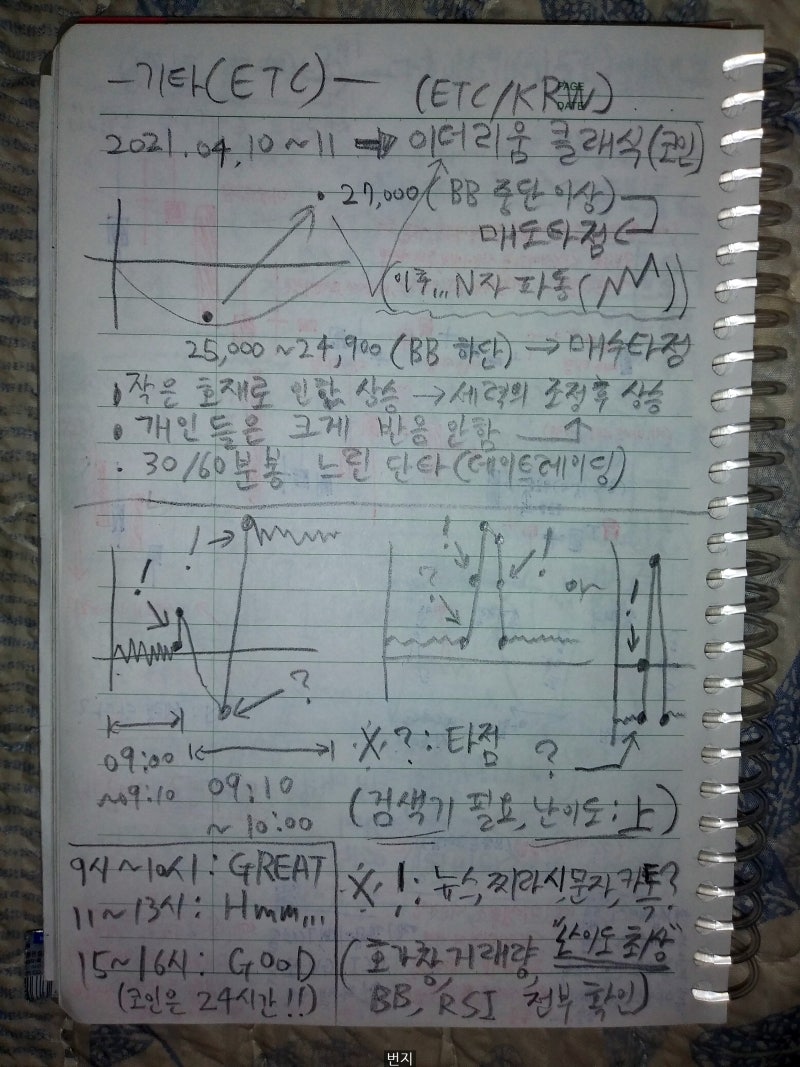 ー기타(ETC)ー (ETC/KRW)
PAGE
DATE
2021.04.10~11 ➡ 이더리움 클래식(코인)
27,000(BB 중단 이상)
매도타점
(이후... N자 파동( ))
25,000~24,900(BB 하단)→매수타점
• 작은 호재로 인한 상승 →세력의 조정후 상승
• 개인들은 크게 반응 안함
• 30/60분봉 느린 단타(데이트레이딩)
! ! ?
! ? ! or
! ?
09:00
~09:10
09:10
~10:00
※ ?: 타점
(검색기 필요, 난이도: 上)
9시~10시: GREAT
11~13시: Hmm...
15~16시: GOOD
(코인은 24시간!!)
※ !: 뉴스,찌라시,문자,카톡?
(호가창,거래량, "난이도 최상"
BB, RSI 전부 확인)
번지